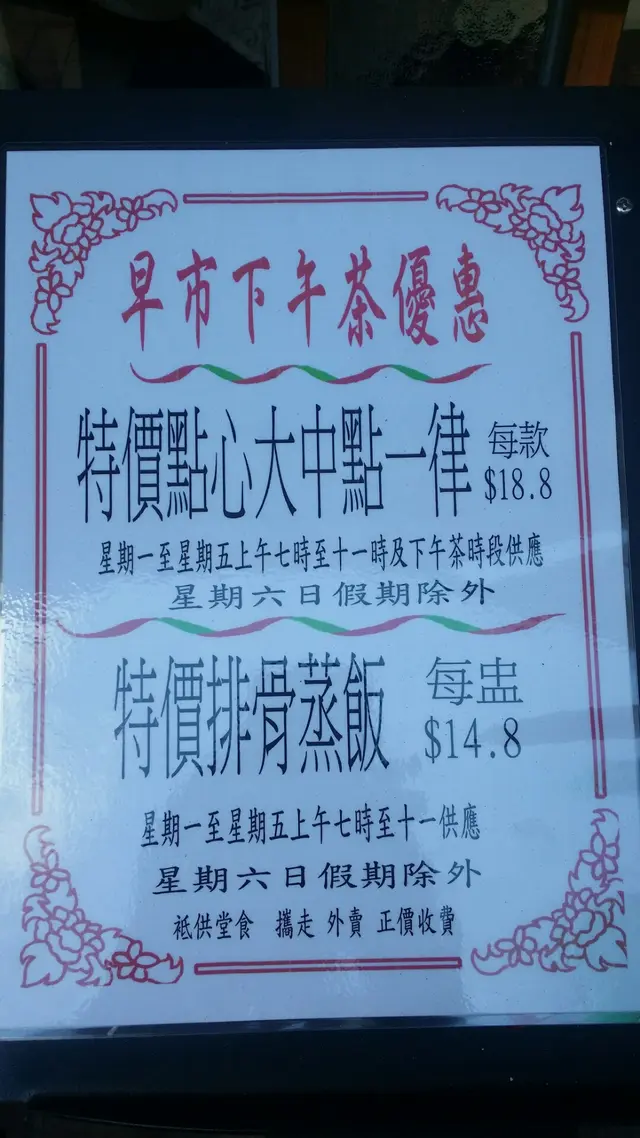 早市下午茶優惠
特價點心大中點一律 每款 $18.8
星期一至星期五上午七時至十一時及下午茶時段供應
星期六日假期除外
特價排骨蒸飯 每盅 $14.8
星期一至星期五上午七時至十一供應
星期六日假期除外
祗供堂食 攜走 外賣 正價收費